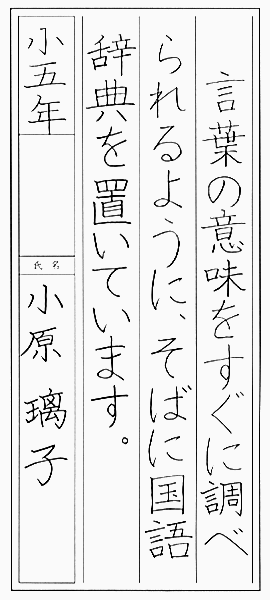 言葉の意味をすぐに調べ
られるように、そばに国語
辞典を置いています。
小五年
氏名
小原璃子